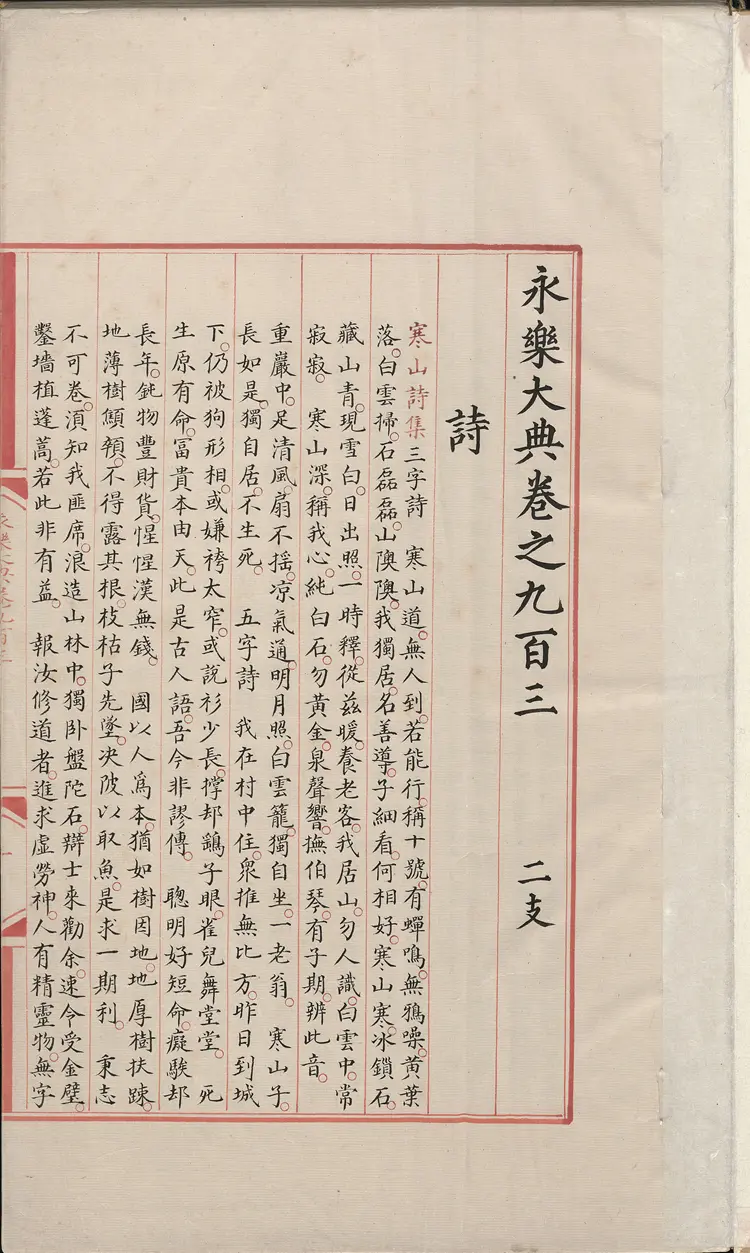 永樂大典卷之九百三　二支
詩
寒山詩集三字詩　寒山道。無人到。若能行。稱十號。有蟬鳴。無鴉噪。黃葉
落。白雲掃。石磊磊。山隩隩。我獨居。名善導。子細看。何相好。寒山寒。冰鎖石。
藏山青。現雪白。日出照。一時釋。從茲暖。養老客。我居山。勿人識。白雲中。常
寂寂。　寒山深。稱我心。純白石。勿黃金。泉聲響。撫伯琴。有子期。辨此音。
重巖中。足清風。扇不搖。凉氣通。明月照。白雲籠。獨自坐。一老翁。　寒山子。
長如是。獨自居。不生死。　五字詩　我在村中住。衆推無比方。昨日到城
下。仍被狗形相。或嫌袴太窄。或說衫少長。撑却鷂子眼。雀兒舞堂堂。　死
生原有命。冨貴本由天。此是古人語。吾今非謬傳。　聰明好短命。癡騃却
長年。鈍物豐財貨。惺惺漢無錢。　國以人爲本。猶如樹因地。地厚樹扶踈。
地薄樹顦顇。不得露其根。枝枯子先墜。决陂以取魚。是求一期利。　秉志
不可卷。湏知我匪席。浪造山林中。獨卧盤陀石。辯士來勸余。速令受金璧。
鑿墻植蓬蒿。若此非有益。　報汝修道者。進求虛勞神。人有精靈物。無字